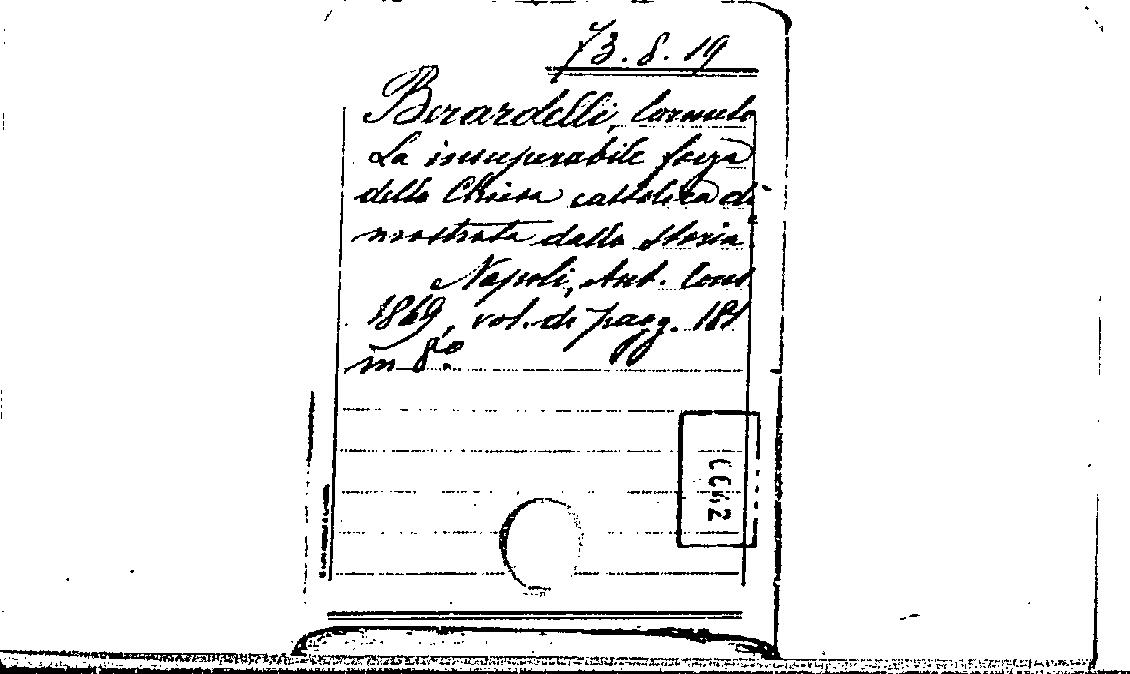 73.8.19
Berardelli, Carmelo
La insuperabile forza
della Chiesa cattolica di
mostrata dalla Storia
Napoli, Ant. Cons
1869, vol. di pagg. 181
in 8.º